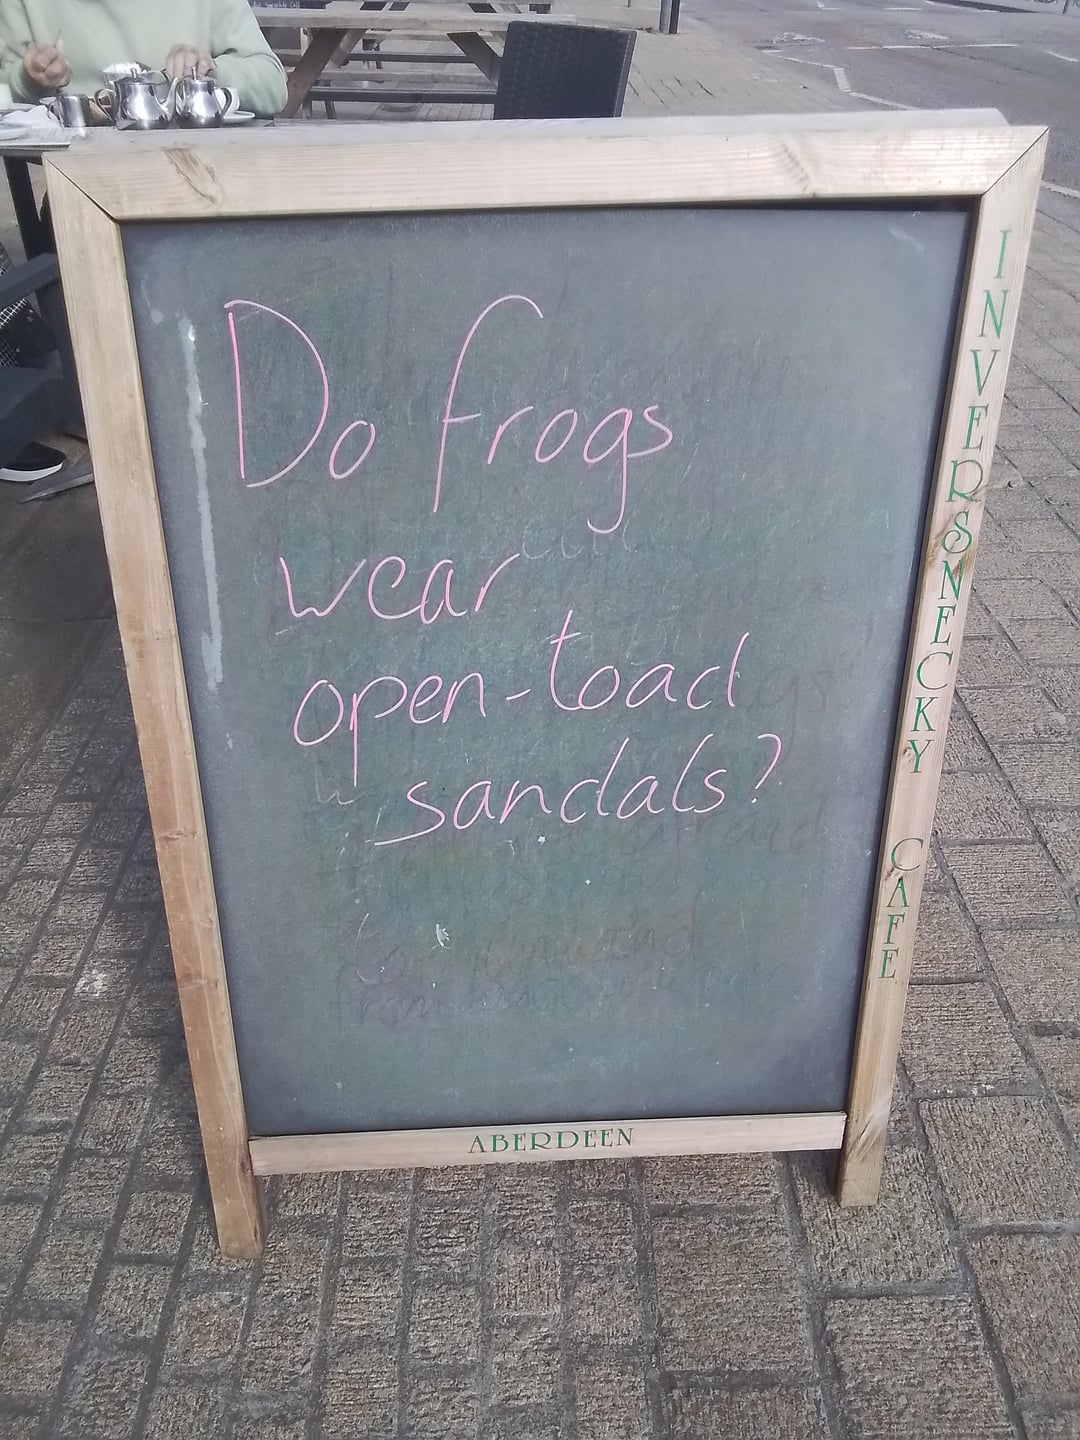 Do frogs
wear
open-toad
sandals?
INVERSNECKY CAFE
ABERDEEN